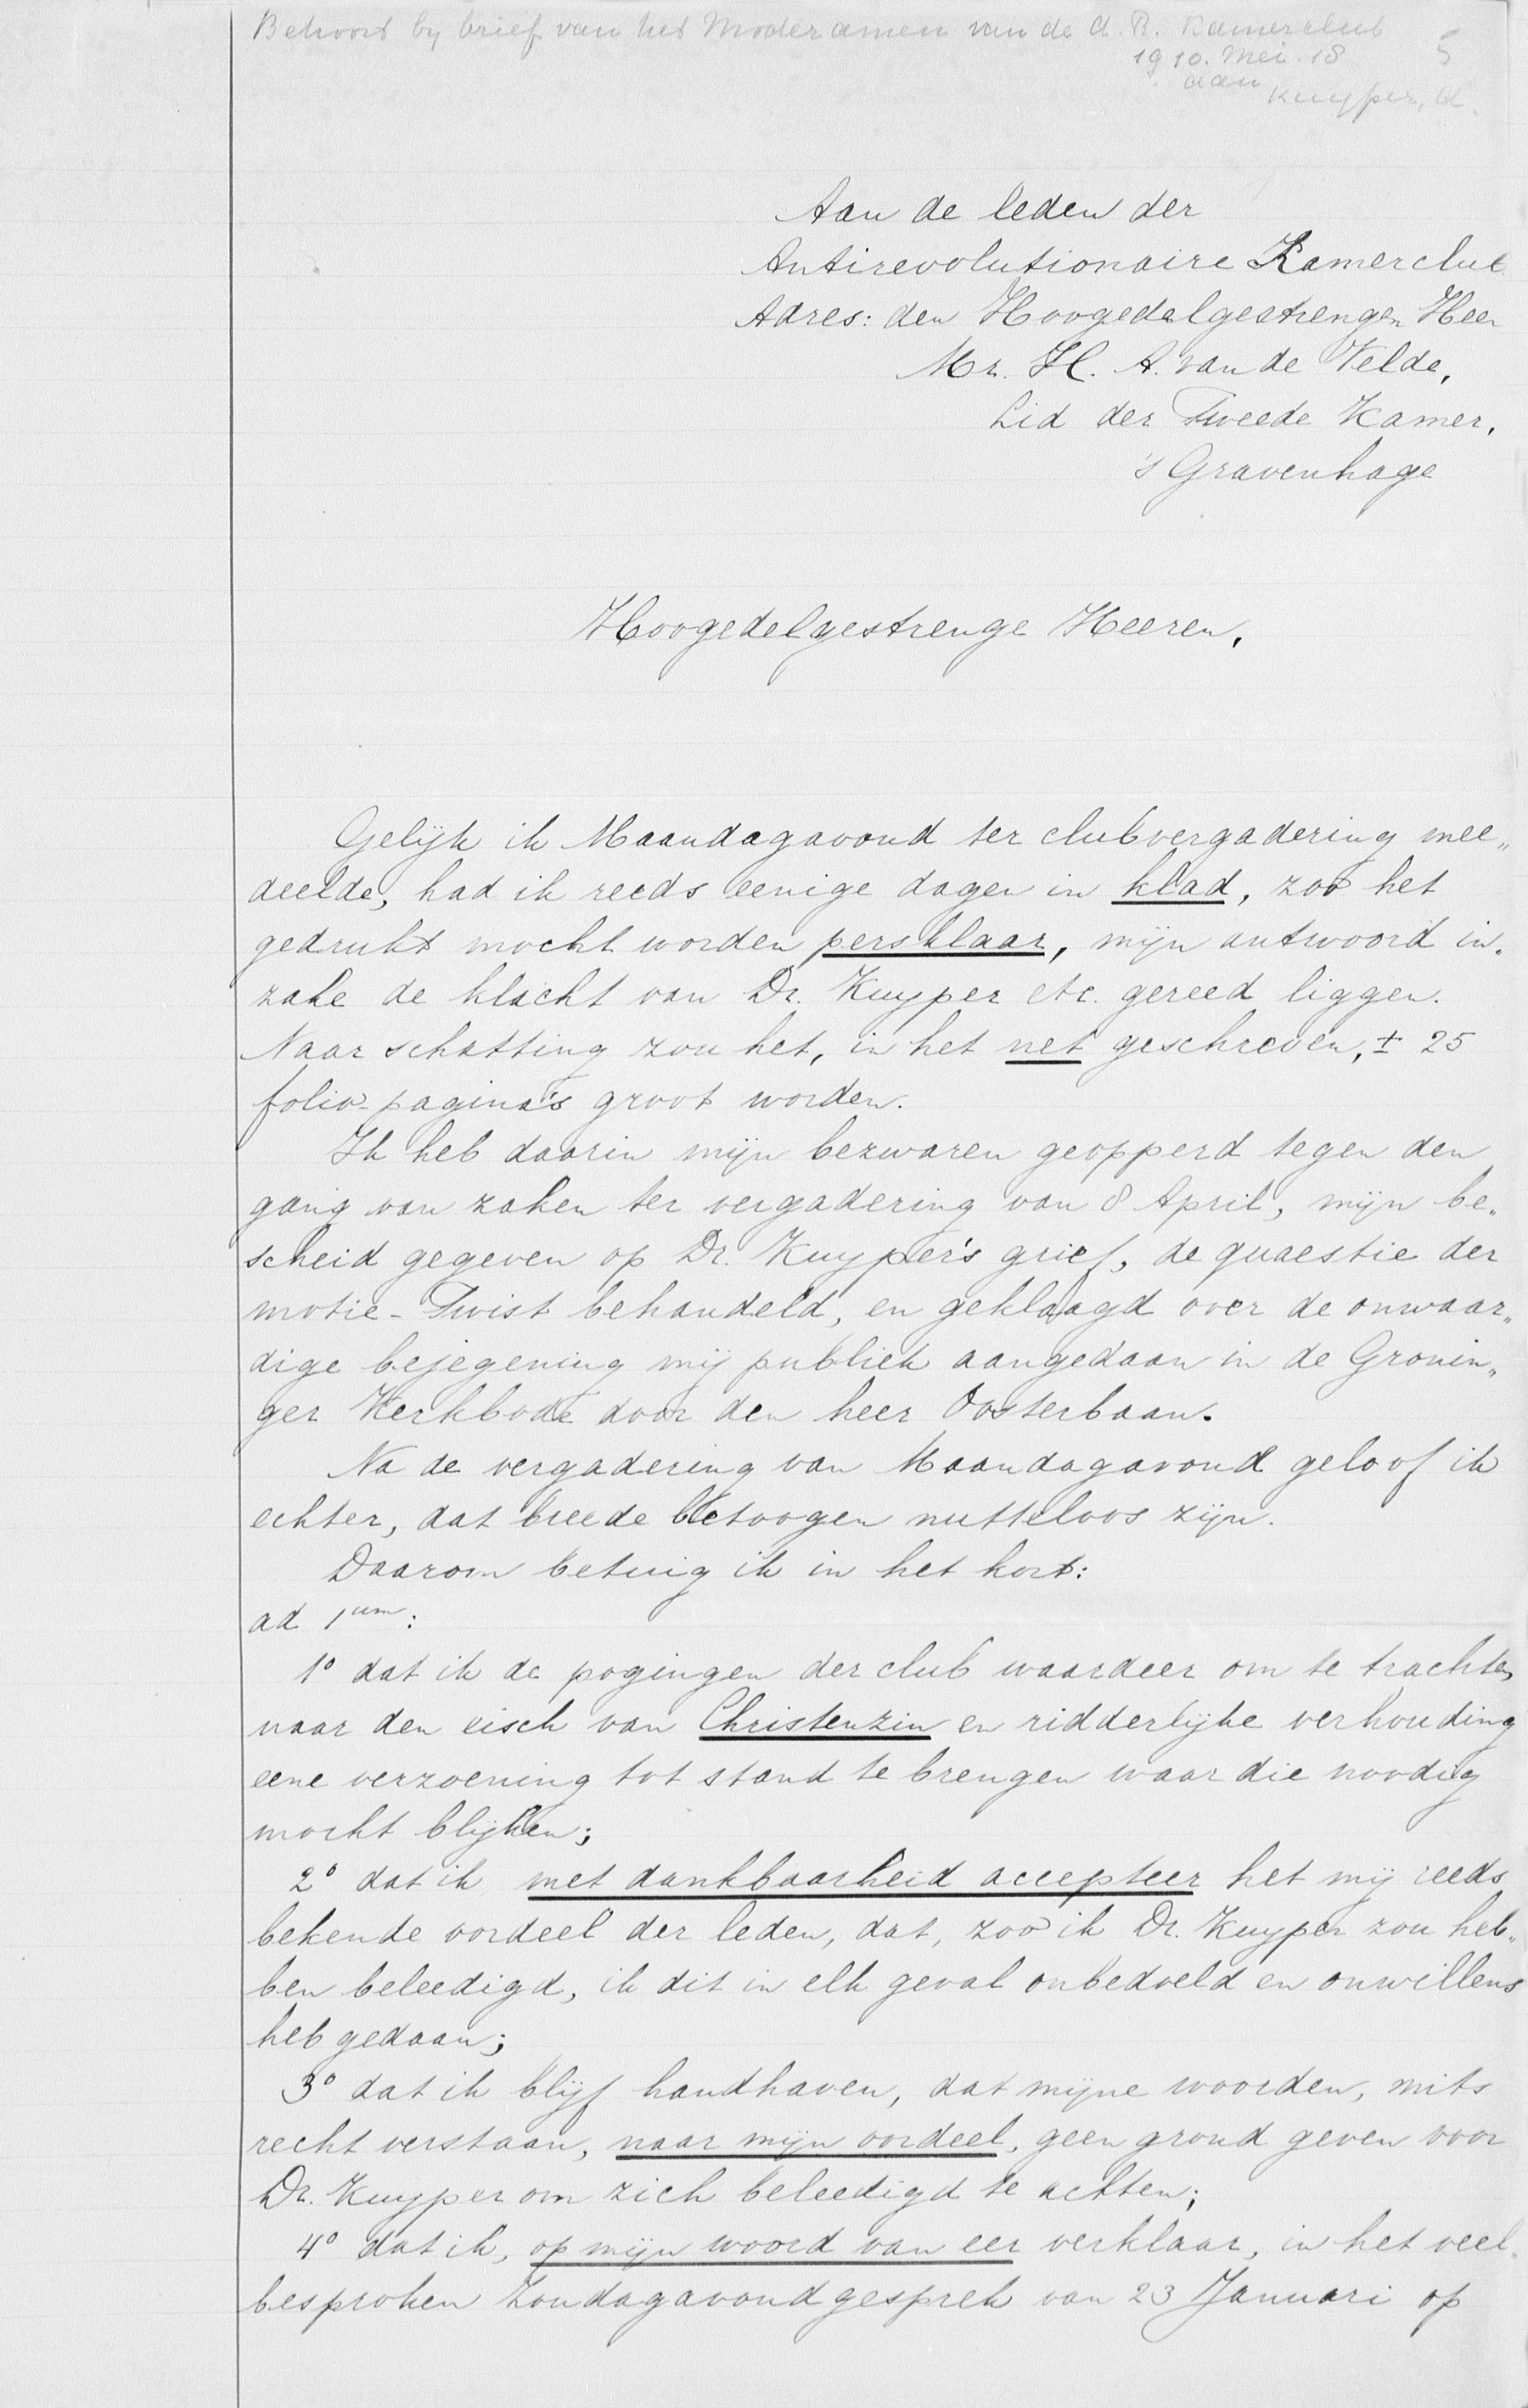 Behoort by brief van het Moderamen van de A. R. Kamerclub
1910. Mei. 18
5
aan
Kuyper, A.
Aan de leden der
Antirevolutionaire Kamerclub
Adres: den Hoogedelgestrengen Heer
Mr. H. A. van de Velde,
Lid der Tweede Kamer,
's Gravenhage
Hoogedelgestrenge Heeren,
Gelijk ik Maandagavond ter clubvergadering mee„
deelde, had ik reeds eenige dagen in klad, zoo het
gedrukt mocht worden persklaar, mijn antwoord in„
zake de klacht van Dr. Kuyper etc. gereed liggen.
Naar schatting zou het, in het net geschreven, ± 25
folio-pagina's groot worden.
Ik heb daarin mijn bezwaren geopperd tegen den
gang van zaken ter vergadering van 8 April, mijn be„
scheid gegeven op Dr. Kuyper's grief, de quaestie der
motie-Twist behandeld, en geklaagd over de onwaar„
dige bejegening mij publiek aangedaan in de Gronin„
ger Kerkbode door den heer Oosterbaan.
Na de vergadering van Maandagavond geloof ik
echter, dat breede betoogen nutteloos zijn.
Daarom betuig ik in het kort:
ad 1um:
1o dat ik de pogingen der club waardeer om te trachten
naar den eisch van Christenzin en ridderlijke verhouding
eene verzoening tot stand te brengen waar die noodig
mocht blijken;
2o dat ik met dankbaarheid accepteer het mij reeds
bekende oordeel der leden, dat, zoo ik Dr. Kuyper zou heb„
ben beleedigd, ik dit in elk geval onbedoeld en onwillens
heb gedaan;
3o dat ik blijf handhaven, dat mijne woorden, mits
recht verstaan, naar mijn oordeel, geen grond geven voor
Dr. Kuyper om zich beleedigd te achten;
4o dat ik, op mijn woord van eer verklaar, in het veel„
besproken Zondagavondgesprek van 23 Januari op